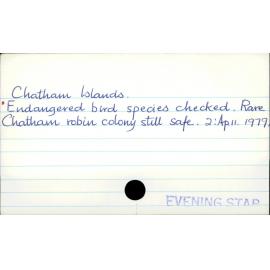 Chatham Islands.
* Endangered bird species checked. Rare
Chatham robin colony still safe. 2:Ap11.1979.
EVENING STAR